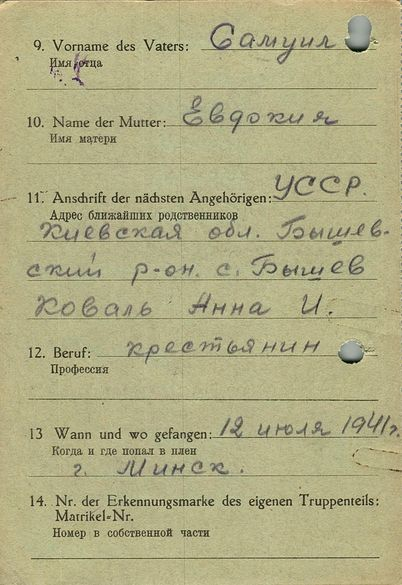 9. Vorname des Vaters: Самуил
Имя отца
10. Name der Mutter: Евдокия
Имя матери
11. Anschrift der nächsten Angehörigen: УССР.
Адрес ближайших родственников
Киевская обл. Бышев-
ский р-он. с. Бышев
Коваль Анна И.
12. Beruf: крестьянин
Профессия
13 Wann und wo gefangen: 12 июля 1941 г.
Когда и где попал в плен
г. Минск.
14. Nr. der Erkennungsmarke des eigenen Truppenteils:
Matrikel-Nr.
Номер в собственной части